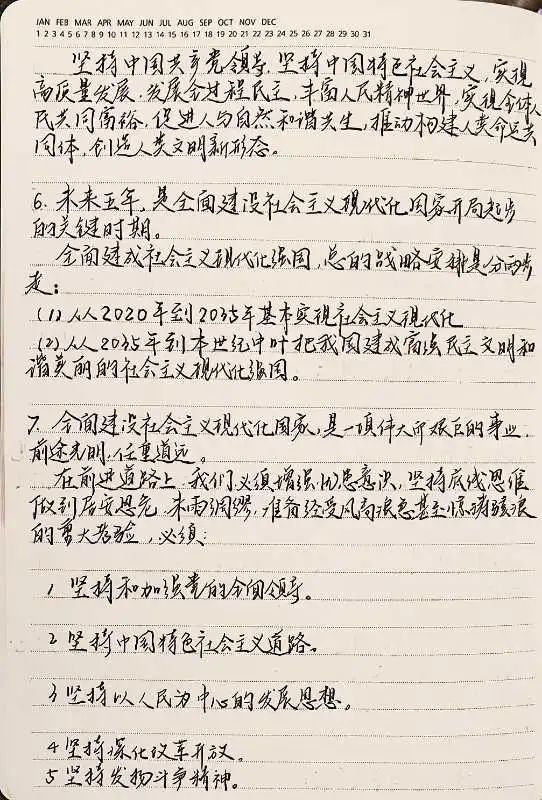 JAN FEB MAR APR MAY JUN JUL AUG SEP OCT NOV DEC
1 2 3 4 5 6 7 8 9 10 11 12 13 14 15 16 17 18 19 20 21 22 23 24 25 26 27 28 29 30 31
坚持中国共产党领导,坚持中国特色社会主义,实现
高质量发展,发展全过程民主,丰富人民精神世界,实现全体人
民共同富裕,促进人与自然和谐共生,推动构建人类命运共
同体,创造人类文明新形态。
6. 未来五年,是全面建设社会主义现代化国家开局起步
的关键时期。
全面建成社会主义现代化强国,总的战略安排是分两步
走:
(1) 从2020年到2035年基本实现社会主义现代化
(2) 从2035年到本世纪中叶把我国建成富强民主文明和
谐美丽的社会主义现代化强国。
7. 全面建设社会主义现代化国家,是一项伟大而艰巨的事业,
前途光明,任重道远。
在前进道路上,我们必须增强忧患意识,坚持底线思维
做到居安思危、未雨绸缪,准备经受风高浪急甚至惊涛骇浪
的重大考验,必须:
1 坚持和加强党的全面领导。
2 坚持中国特色社会主义道路。
3 坚持以人民为中心的发展思想。
4 坚持深化改革开放。
5 坚持发扬斗争精神。